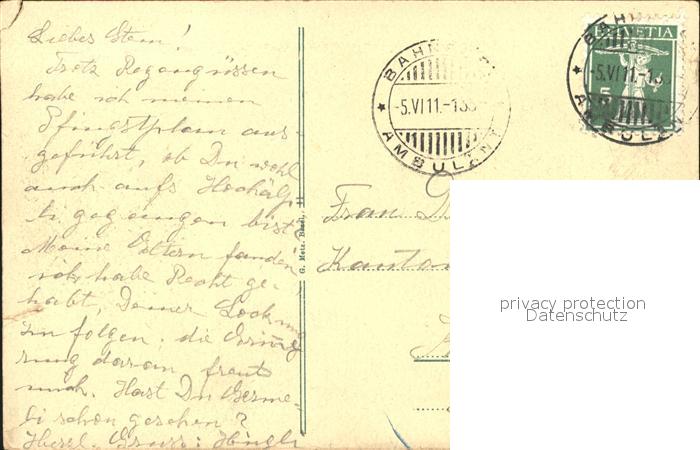 Liebes Stern!
Trotz Regengüssen
habe ich meinen
Pfingstplan aus-
geführt, ob Du wohl
auch aufs Hochälp-
li gegangen bist?
Meine Eltern fanden
ich habe Recht ge-
habt, Deiner Lockung
zu folgen; die
rung daran freut
mich. Hast Du
li schon gesehen?
Herzl. Gruss:
G. Metz, Basel.
BAHNPOST
-5.VI.11.-1
AMBULANT
HELVETIA
5
BAHN
-5.VI.11.-1
AMBULANT
Frau D
Kanton
privacy protection
Datenschutz